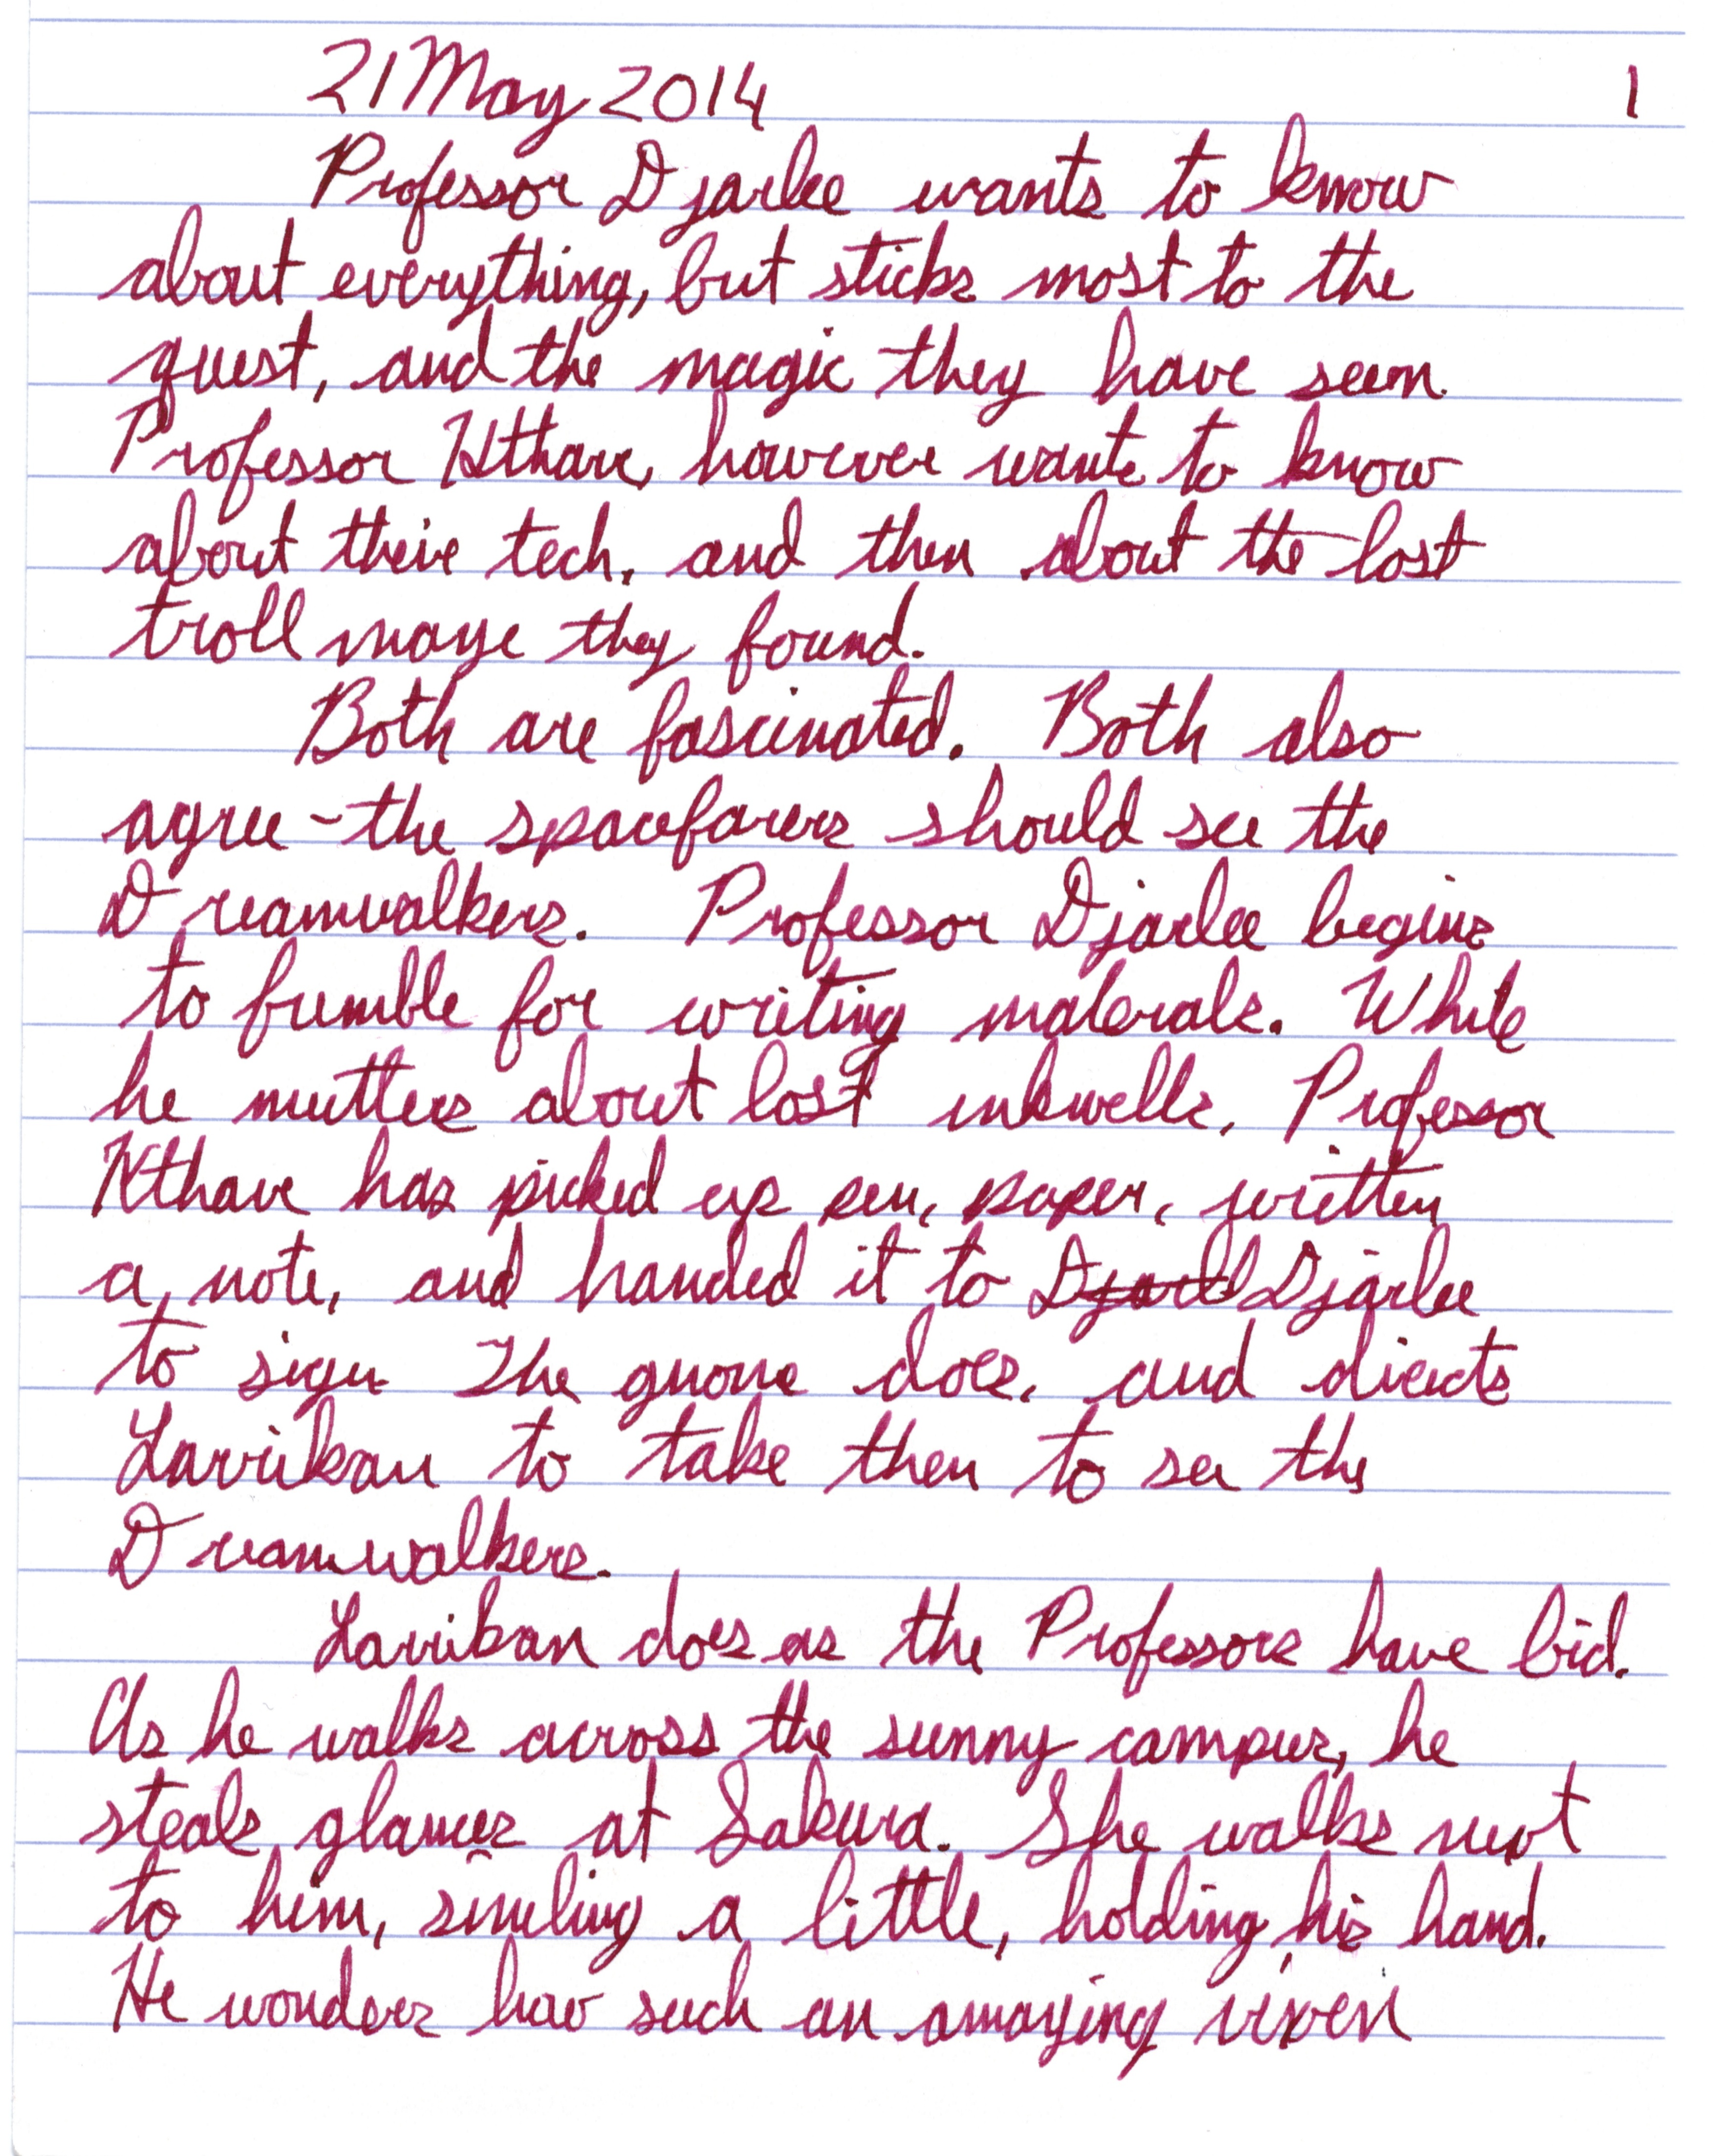 21 May 2014 1
Professor Djarlee wants to know
about everything, but sticks most to the
quest, and the magic they have seen.
Professor Kthare, however wants to know
about their tech, and then about the lost
troll mage they found.
Both are fascinated. Both also
agree - the spacefarers should see the
Dreamwalkers. Professor Djarlee begins
to fumble for writing materals. While
he mutters about lost inkwells, Professor
Kthare has picked up pen, paper, written
a note, and handed it to Djarl Djarlee
to sign The gnome does, and directs
Lariikan to take them to see the
Dreamwalkers.
Lariikan does as the Professors have bid.
As he walks across the sunny campus, he
steals glances at Sakura. She walks next
to him, smiling a little, holding his hand.
He wonders how such an amazing vixen